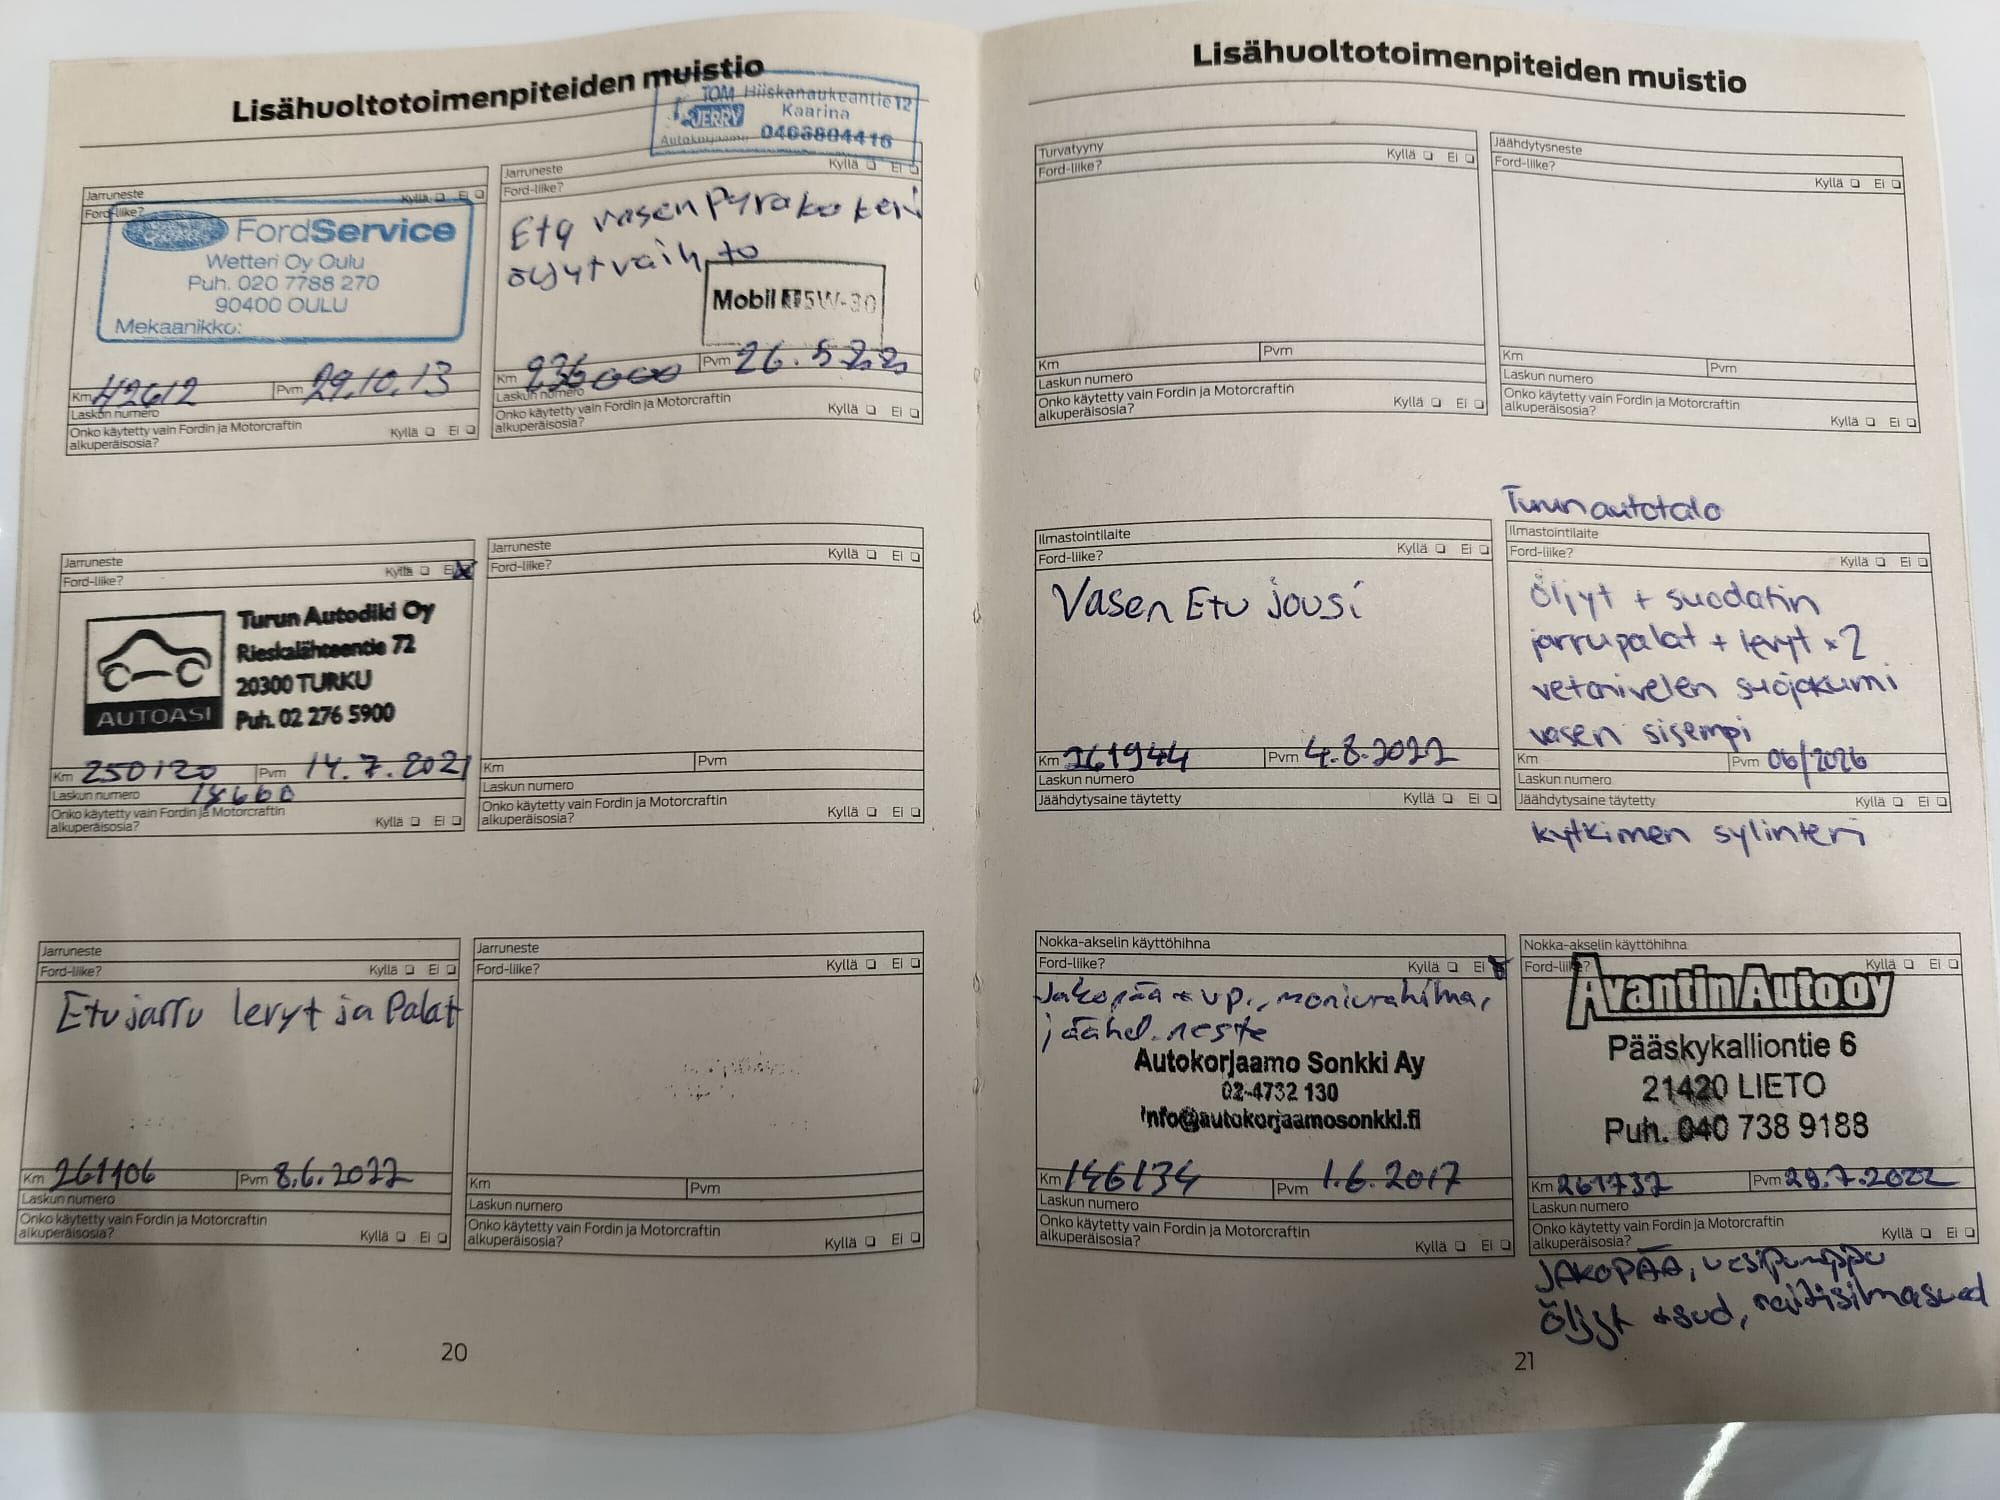 Lisähuoltotoimenpiteiden muistio
TOM Hiiskanaukeantie 12
JERRY Kaarina
Autokorjaamo 0463804416
Jarruneste
Ford-liike? Kyllä Ei
FordService
Wetteri Oy Oulu
Puh. 020 7788 270
90400 OULU
Mekaanikko:
Km 42612 Pvm 29.10.13
Laskun numero
Onko käytetty vain Fordin ja Motorcraftin
alkuperäisosia? Kyllä Ei
Jarruneste
Ford-liike? Kyllä Ei
Etu vasen Pyräkoteri
öljyt vaihto
Mobil 5W-30
Km 236000 Pvm 26.5.22
Laskun numero
Onko käytetty vain Fordin ja Motorcraftin
alkuperäisosia? Kyllä Ei
Jarruneste
Ford-liike? Kyllä Ei
AUTOASI
Turun Autodiki Oy
Rieskalähteentie 72
20300 TURKU
Puh. 02 276 5900
Km 250120 Pvm 14.7.2021
Laskun numero 18660
Onko käytetty vain Fordin ja Motorcraftin
alkuperäisosia? Kyllä Ei
Jarruneste
Ford-liike? Kyllä Ei
Km Pvm
Laskun numero
Onko käytetty vain Fordin ja Motorcraftin
alkuperäisosia? Kyllä Ei
Jarruneste
Ford-liike? Kyllä Ei
Etujarru levyt ja Palat
Km 261106 Pvm 8.6.2022
Laskun numero
Onko käytetty vain Fordin ja Motorcraftin
alkuperäisosia? Kyllä Ei
Jarruneste
Ford-liike? Kyllä Ei
Km Pvm
Laskun numero
Onko käytetty vain Fordin ja Motorcraftin
alkuperäisosia? Kyllä Ei
20
Lisähuoltotoimenpiteiden muistio
Turvatyyny
Ford-liike? Kyllä Ei
Km Pvm
Laskun numero
Onko käytetty vain Fordin ja Motorcraftin
alkuperäisosia? Kyllä Ei
Jäähdytysneste
Ford-liike? Kyllä Ei
Km Pvm
Laskun numero
Onko käytetty vain Fordin ja Motorcraftin
alkuperäisosia? Kyllä Ei
Ilmastointilaite
Ford-liike? Kyllä Ei
Vasen Etu jousi
Km 261944 Pvm 4.8.2022
Laskun numero
Jäähdytysaine täytetty Kyllä Ei
Turun autotalo
Ilmastointilaite
Ford-liike? Kyllä Ei
Öljyt + suodatin
jarrupalat + levyt x2
vetonivelen suojakumi
vasen sisempi
Km Pvm 06/2026
Laskun numero
Jäähdytysaine täytetty Kyllä Ei
kytkimen sylinteri
Nokka-akselin käyttöhihna
Ford-liike? Kyllä Ei
Jakopää + vp., moniurahihna,
jäähd.neste
Autokorjaamo Sonkki Ay
02-4732 130
info@autokorjaamosonkki.fi
Km 146134 Pvm 1.6.2017
Laskun numero
Onko käytetty vain Fordin ja Motorcraftin
alkuperäisosia? Kyllä Ei
Nokka-akselin käyttöhihna
Ford-liike? Kyllä Ei
Avantin Auto oy
Pääskykalliontie 6
21420 LIETO
Puh. 040 738 9188
Km 261737 Pvm 29.7.2022
Laskun numero
Onko käytetty vain Fordin ja Motorcraftin
alkuperäisosia? Kyllä Ei
JAKOPÄÄ, vesipumppu
Öljyt + sud, raitisilmasuod
21